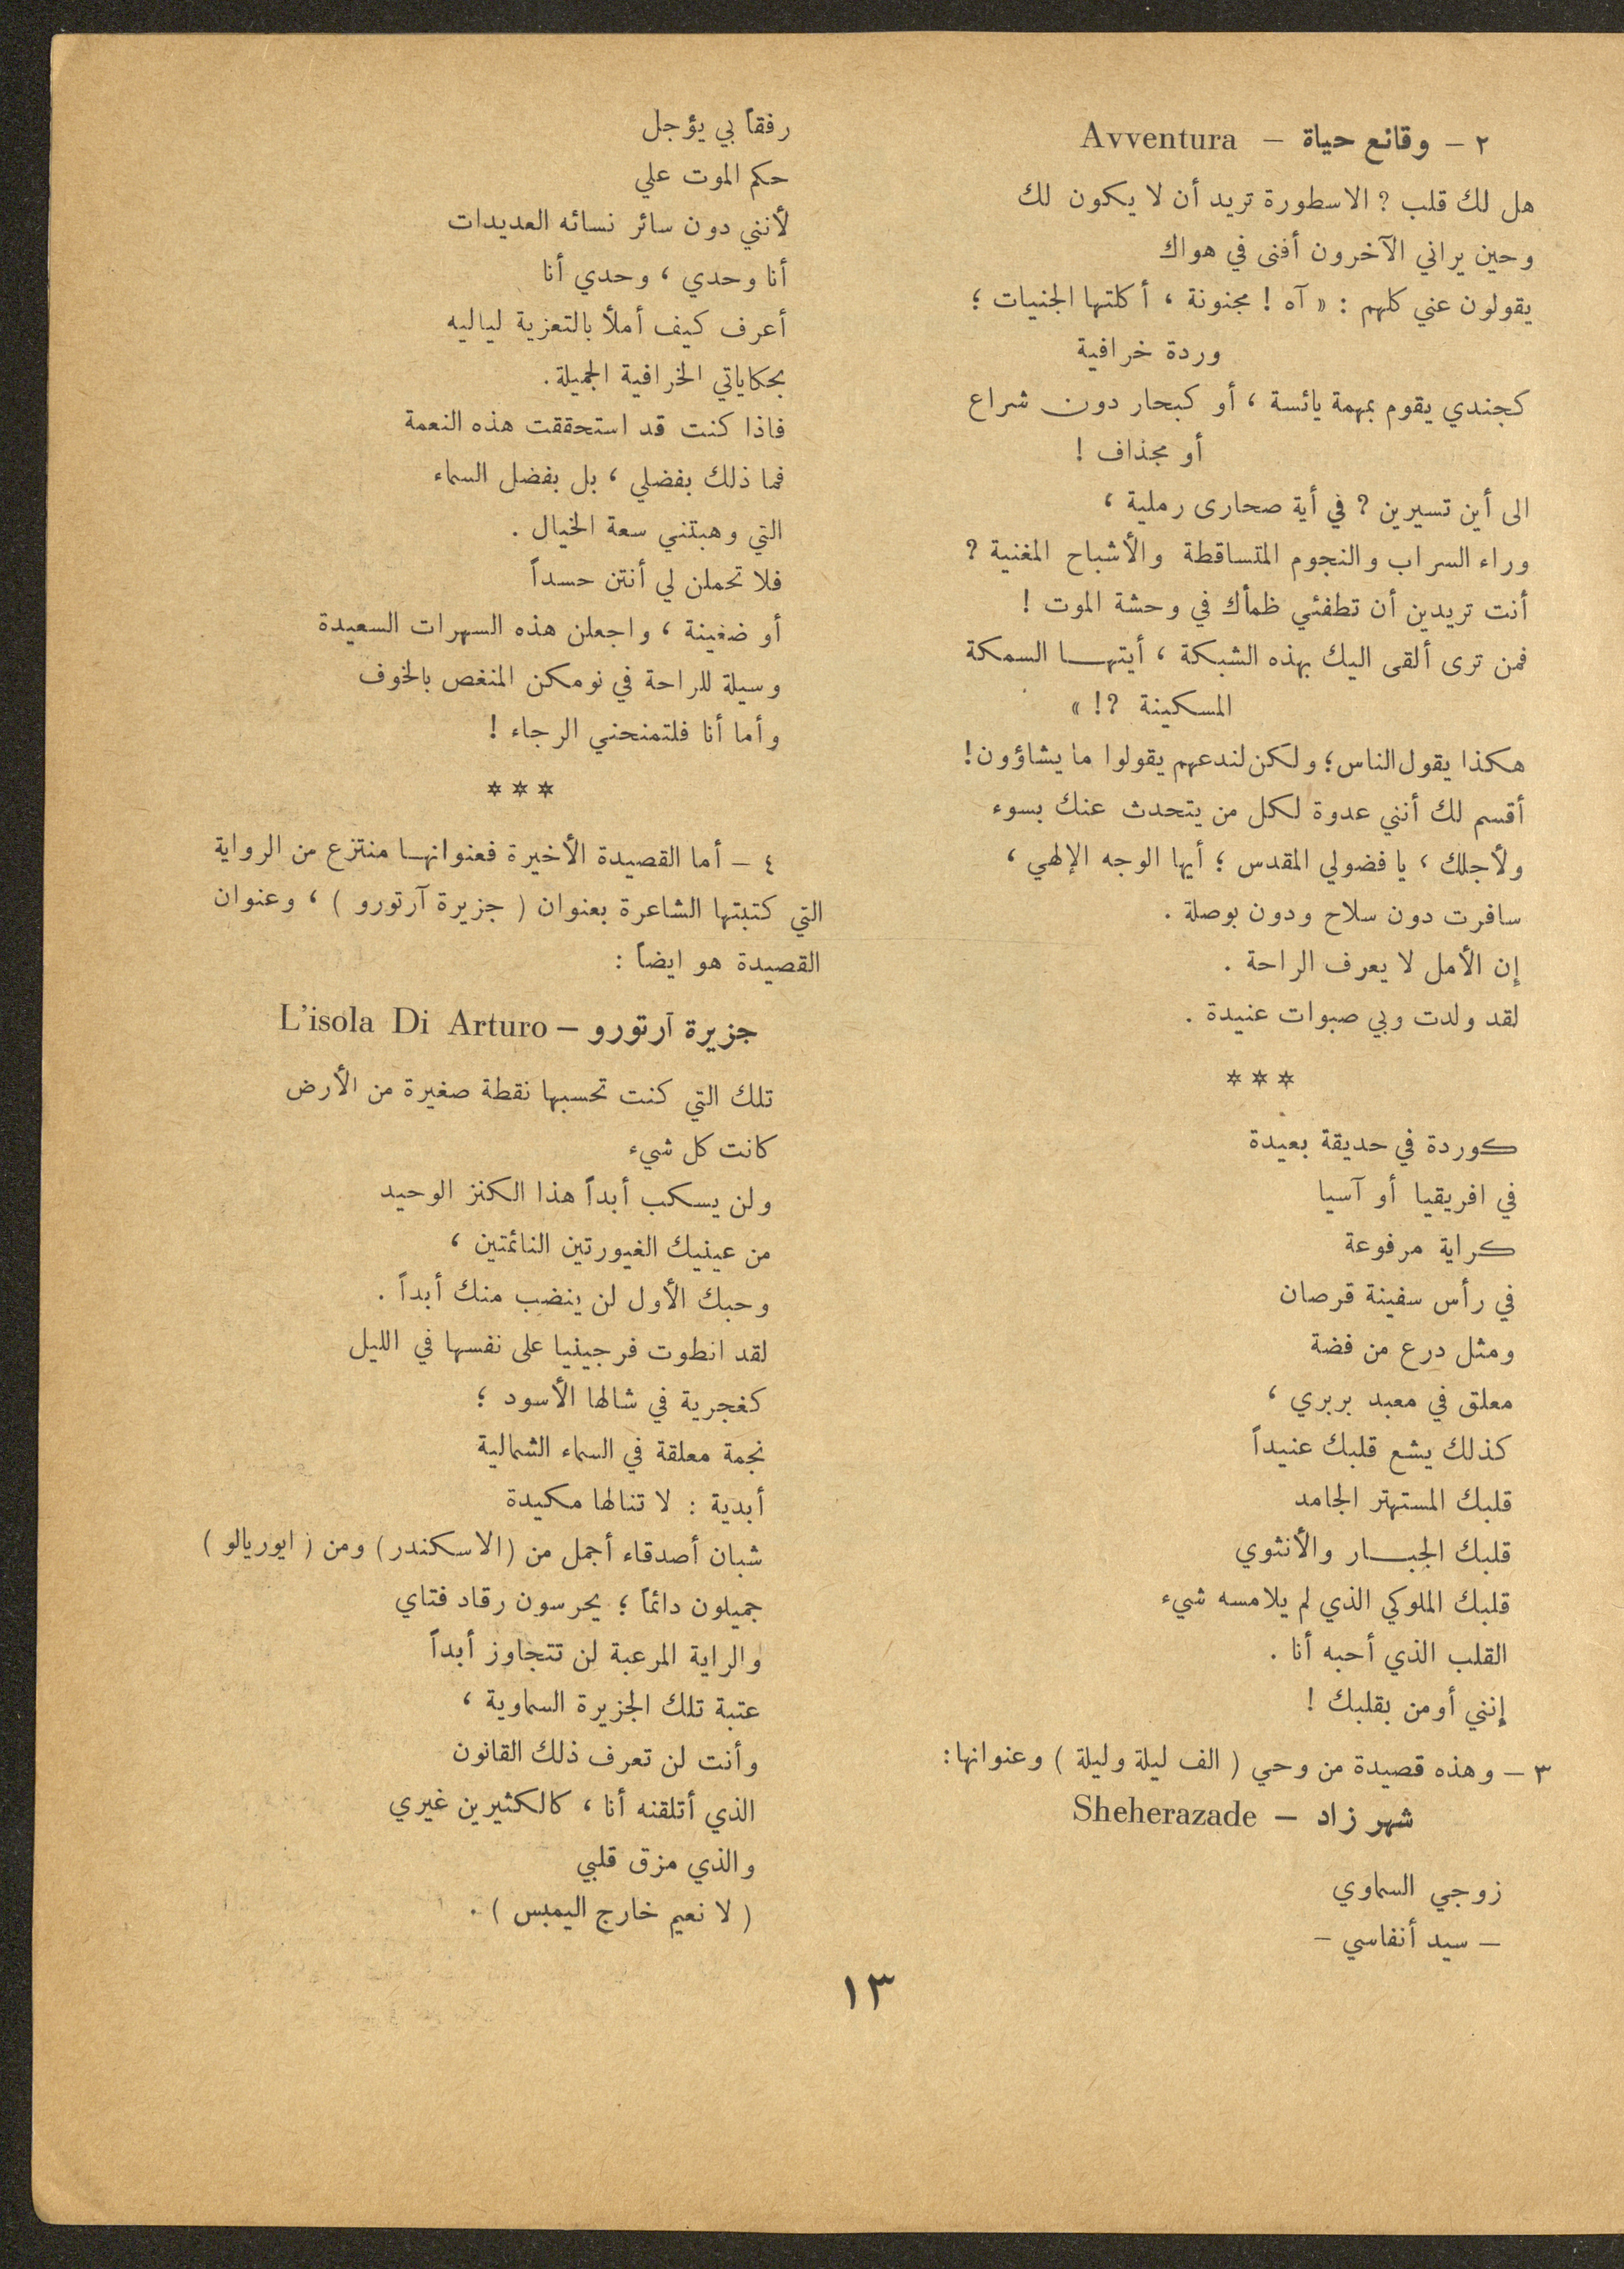 ٢ – وقائع حياة – Avventura
هل لك قلب ؟ الاسطورة تريد أن لا يكون لك
وحين يراني الآخرون أفنى في هواك
يقولون عني كلهم : « آه ! مجنونة ، أكلتها الجنيات ؛
وردة خرافية
كجندي يقوم بمهمة يائسة ، أو كبحار دون شراع
أو مجذاف !
الى أين تسيرين ؟ في أية صحارى رملية ،
وراء السراب والنجوم المتساقطة والأشباح المغنية ؟
أنت تريدين أن تطفئي ظمأك في وحشة الموت !
فمن ترى ألقى اليك بهذه الشبكة ، أيتهـا السمكة
المسكينة ؟! »
هكذا يقول الناس ؛ ولكن لندعهم يقولوا ما يشاؤون !
أقسم لك أنني عدوة لكل من يتحدث عنك بسوء
ولأجلك ، يا فضولي المقدس ؛ أيها الوجه الإلهي ،
سافرت دون سلاح ودون بوصلة .
إن الأمل لا يعرف الراحة .
لقد ولدت وبي صبوات عنيدة .
***
كوردة في حديقة بعيدة
في افريقيا أو آسيا
كراية مرفوعة
في رأس سفينة قرصان
ومثل درع من فضة
معلق في معبد بربري ،
كذلك يشع قلبك عنيداً
قلبك المستهتر الجامد
قلبك الجبـار والأنثوي
قلبك الملوكي الذي لم يلامسه شيء
القلب الذي أحبه أنا .
إنني أومن بقلبك !
٣ – وهذه قصيدة من وحي ( الف ليلة وليلة ) وعنوانها :
شهر زاد – Sheherazade
زوجي السماوي
– سيد أنفاسي –
رفقاً بي يؤجل
حكم الموت علي
لأنني دون سائر نسائه العديدات
أنا وحدي ، وحدي أنا
أعرف كيف أملأ بالتعزية لياليه
بحكاياتي الخرافية الجميلة .
فاذا كنت قد استحققت هذه النعمة
فما ذلك بفضلي ، بل بفضل السماء
التي وهبتني سعة الخيال .
فلا تحملن لي أنتن حسداً
أو ضغينة ، واجعلن هذه السهرات السعيدة
وسيلة للراحة في نومكن المنغص بالخوف
وأما أنا فلتمنحني الرجاء !
***
٤ – أما القصيدة الأخيرة فعنوانهـا منتزع من الرواية
التي كتبتها الشاعرة بعنوان ( جزيرة آرتورو ) ، وعنوان
القصيدة هو ايضاً :
جزيرة آرتورو – L'isola Di Arturo
تلك التي كنت تحسبها نقطة صغيرة من الأرض
كانت كل شيء
ولن يسكب أبداً هذا الكنز الوحيد
من عينيك الغيورتين النائمتين ،
وحبك الأول لن ينضب منك أبداً .
لقد انطوت فرجينيا على نفسها في الليل
كغجرية في شالها الأسود ؛
نجمة معلقة في السماء الشمالية
أبدية : لا تنالها مكيدة
شبان أصدقاء أجمل من ( الاسكندر ) ومن ( ايوريالو )
جميلون دائماً ؛ يحرسون رقاد فتاي
والراية المرعبة لن تتجاوز أبداً
عتبة تلك الجزيرة السماوية ،
وأنت لن تعرف ذلك القانون
الذي أتلقنه أنا ، كالكثيرين غيري
والذي مزق قلبي
( لا نعيم خارج اليمبس ) .
١٣